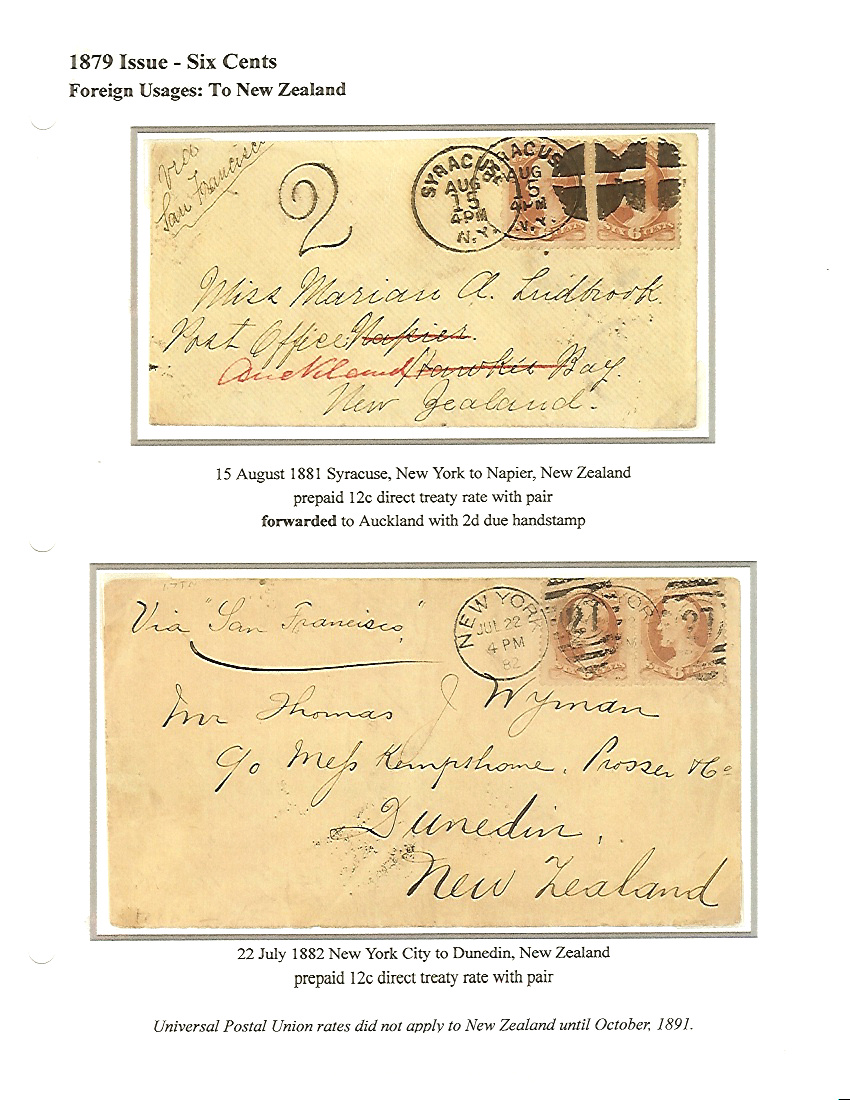 1879 Issue - Six Cents
Foreign Usages: To New Zealand
via
San Francisco
2
SYRACUSE
AUG
15
4 PM
N.Y.
SYRACUS
AUG
15
4 PM
N.Y.
SIX 6 CENTS
Miss Marian A. Ludbrook.
Post Office Napier.
Auckland Hawkes Bay.
New Zealand.
15 August 1881 Syracuse, New York to Napier, New Zealand
prepaid 12c direct treaty rate with pair
forwarded to Auckland with 2d due handstamp
Via "San Francisco"
NEW YORK
JUL 22
4 PM
82
YOR
21
21
Mr Thomas J Wyman
c/o Mess Kempthorne, Prosser & Co
Dunedin,
New Zealand
22 July 1882 New York City to Dunedin, New Zealand
prepaid 12c direct treaty rate with pair
Universal Postal Union rates did not apply to New Zealand until October, 1891.